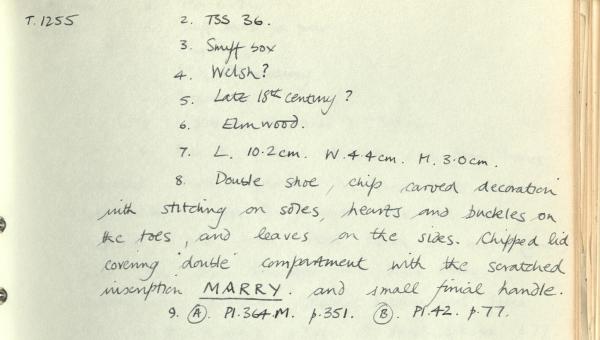 T.1255 2. TSS 36.
3. Snuff box
4. Welsh?
5. Late 18th century?
6. Elmwood.
7. L. 10.2cm. W. 4.4cm. H. 3.0cm.
8. Double shoe, chip carved decoration
with stitching on soles, hearts and buckles on
the toes, and leaves on the sides. Chipped lid
covering 'double' compartment with the scratched
inscription MARRY. and small finial handle.
9. (A). Pl.364.M. p.351. (B). Pl.42. p.77.